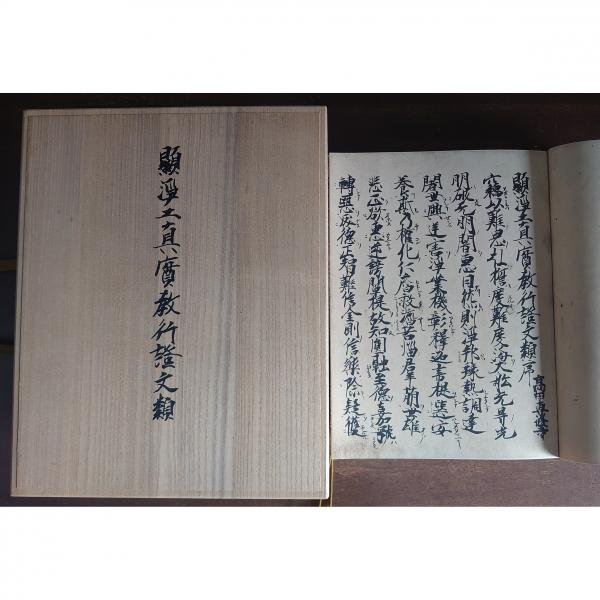 顯淨土真實教行證文類
顯淨土真實教行證文類序
竊以難思弘誓度難度海大船无㝵光
明破无明闇惠日然則淨邦縁熟調達
闍世興逆害淨業機彰釋迦韋提選安
養斯乃權化仁齊救濟苦惱群萠世雄
悲正欲惠逆謗闡提故知圓融至德嘉號
轉惡成德正智難信金剛信樂除疑獲